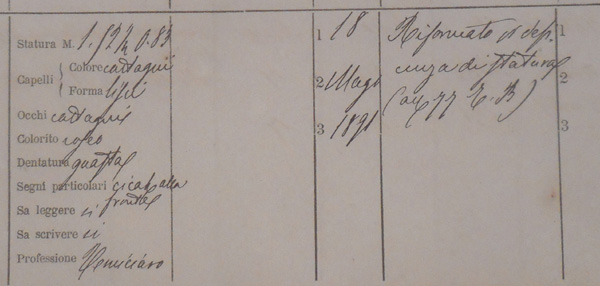 Statura M. 1,52 ½ 0.83
Capelli
Colore castagni
Forma lisci
Occhi castagni
Colorito roseo
Dentatura guasta
Segni particolari cicat. alla
fronte
Sa leggere si
Sa scrivere si
Professione
1 18
2 Magg
3 1891
Riformato p defi-
cenza di statura
(art 77 E. B)
1
2
3